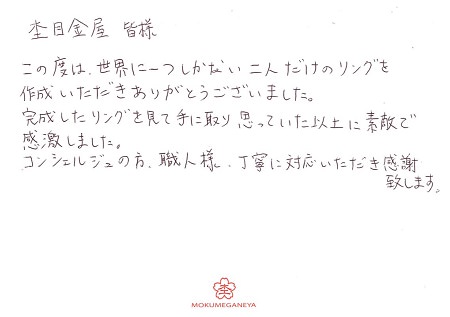 杢目金屋 皆様
この度は、世界に一つしかない二人だけのリングを
作成いただきありがとうございました。
完成したリングを見て手に取り思っていた以上に素敵で
感激しました。
コンシェルジュの方、職人様、丁寧に対応いただき感謝
致します。
杢
MOKUMEGANEYA